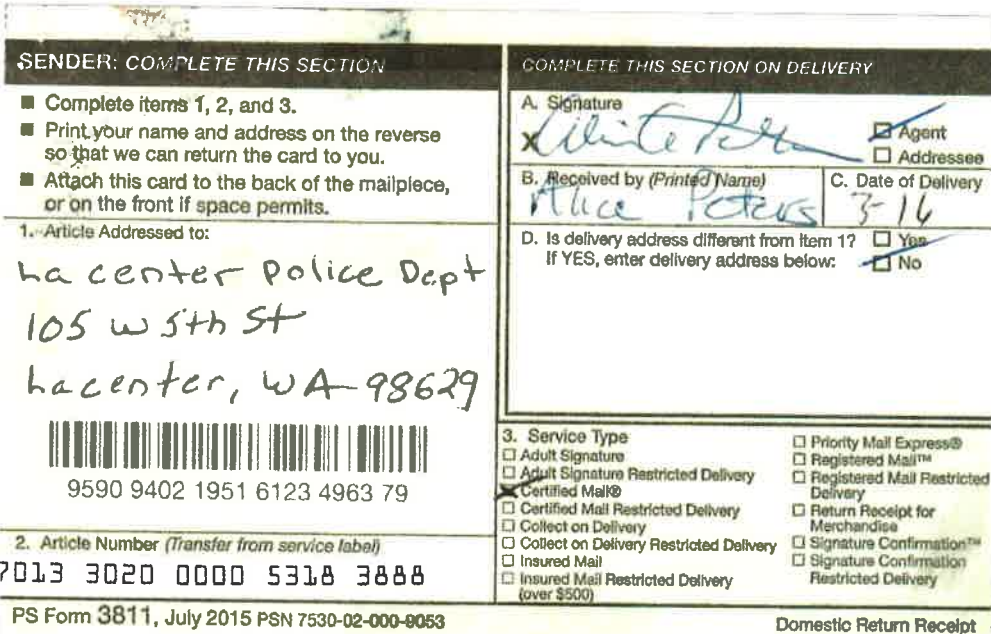 SENDER: COMPLETE THIS SECTION
■ Complete items 1, 2, and 3.
■ Print your name and address on the reverse
so that we can return the card to you.
■ Attach this card to the back of the mailpiece,
or on the front if space permits.
1. Article Addressed to:
La center Police Dept
105 W 5th St
Lacenter, WA 98629
9590 9402 1951 6123 4963 79
2. Article Number (Transfer from service label)
7013 3020 0000 5318 3888
COMPLETE THIS SECTION ON DELIVERY
A. Signature
X
☒ Agent
☐ Addressee
B. Received by (Printed Name)
Alice Peters
C. Date of Delivery
3-16
D. Is delivery address different from item 1? ☐ Yes
If YES, enter delivery address below: ☒ No
3. Service Type
☐ Adult Signature
☐ Adult Signature Restricted Delivery
☒ Certified Mail®
☐ Certified Mail Restricted Delivery
☐ Collect on Delivery
☐ Collect on Delivery Restricted Delivery
☐ Insured Mail
☐ Insured Mail Restricted Delivery
(over $500)
☐ Priority Mail Express®
☐ Registered Mail™
☐ Registered Mail Restricted
Delivery
☐ Return Receipt for
Merchandise
☐ Signature Confirmation™
☐ Signature Confirmation
Restricted Delivery
PS Form 3811, July 2015 PSN 7530-02-000-9053
Domestic Return Receipt